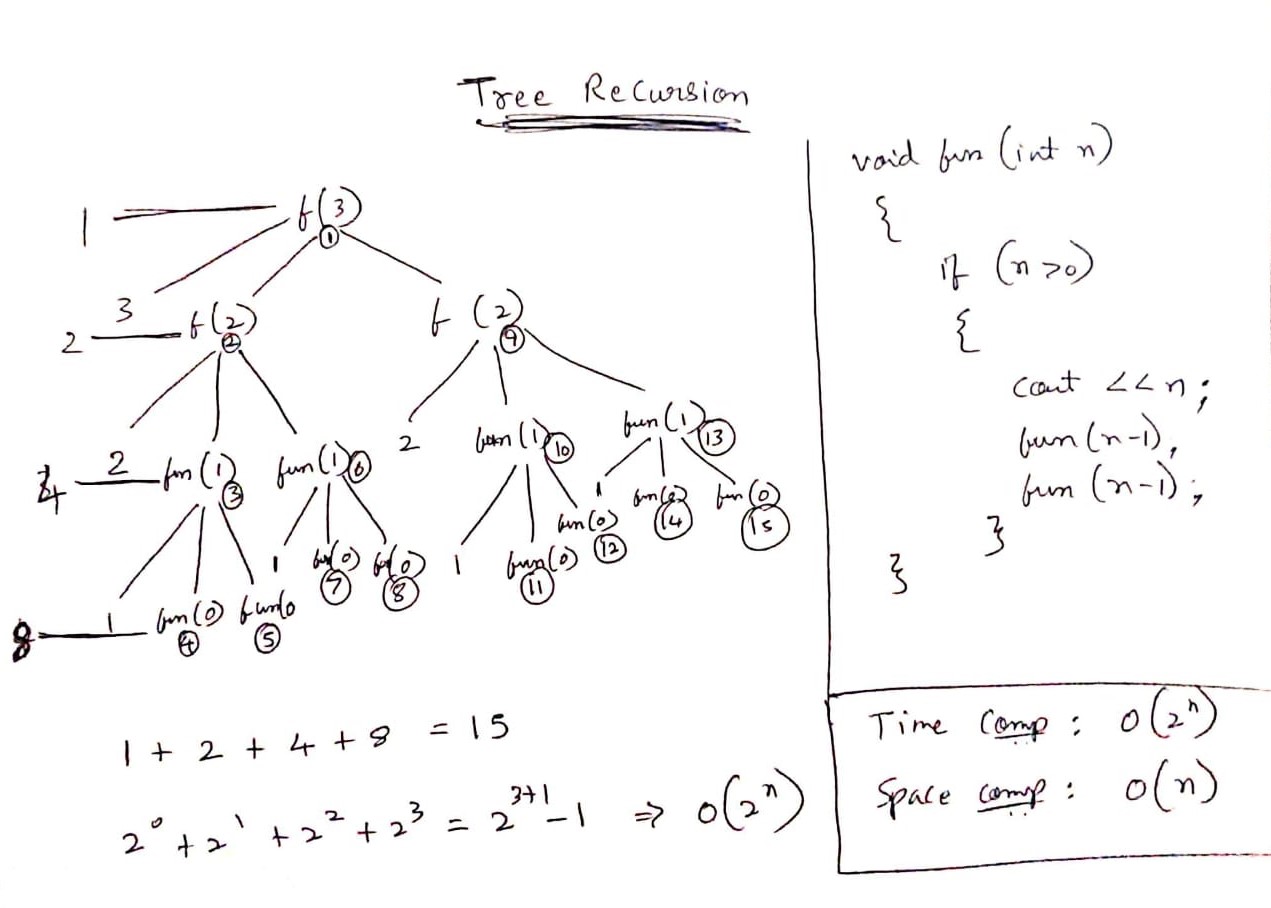 Tree Recursion
1 f(3)
①
3
2 f(2) f (2)
② ⑨
2
4 2 fun(1) fun(1) 2 fun(1) fun(1)
③ ⑥ ⑩ ⑬
1 fun(0) fun(0) 1 fun(0) fun(0)
⑦ ⑧ ⑭ ⑮
1 fun(0) fun(0)
⑪ ⑫
8 1 fun(0) fun(0
④ ⑤
1 + 2 + 4 + 8 = 15
2⁰ + 2¹ + 2² + 2³ = 2³⁺¹ - 1 ⇒ O(2ⁿ)
void fun (int n)
{
if (n>0)
{
cout <<n;
fun(n-1),
fun (n-1);
}
}
Time Comp : O(2ⁿ)
Space comp : O(n)